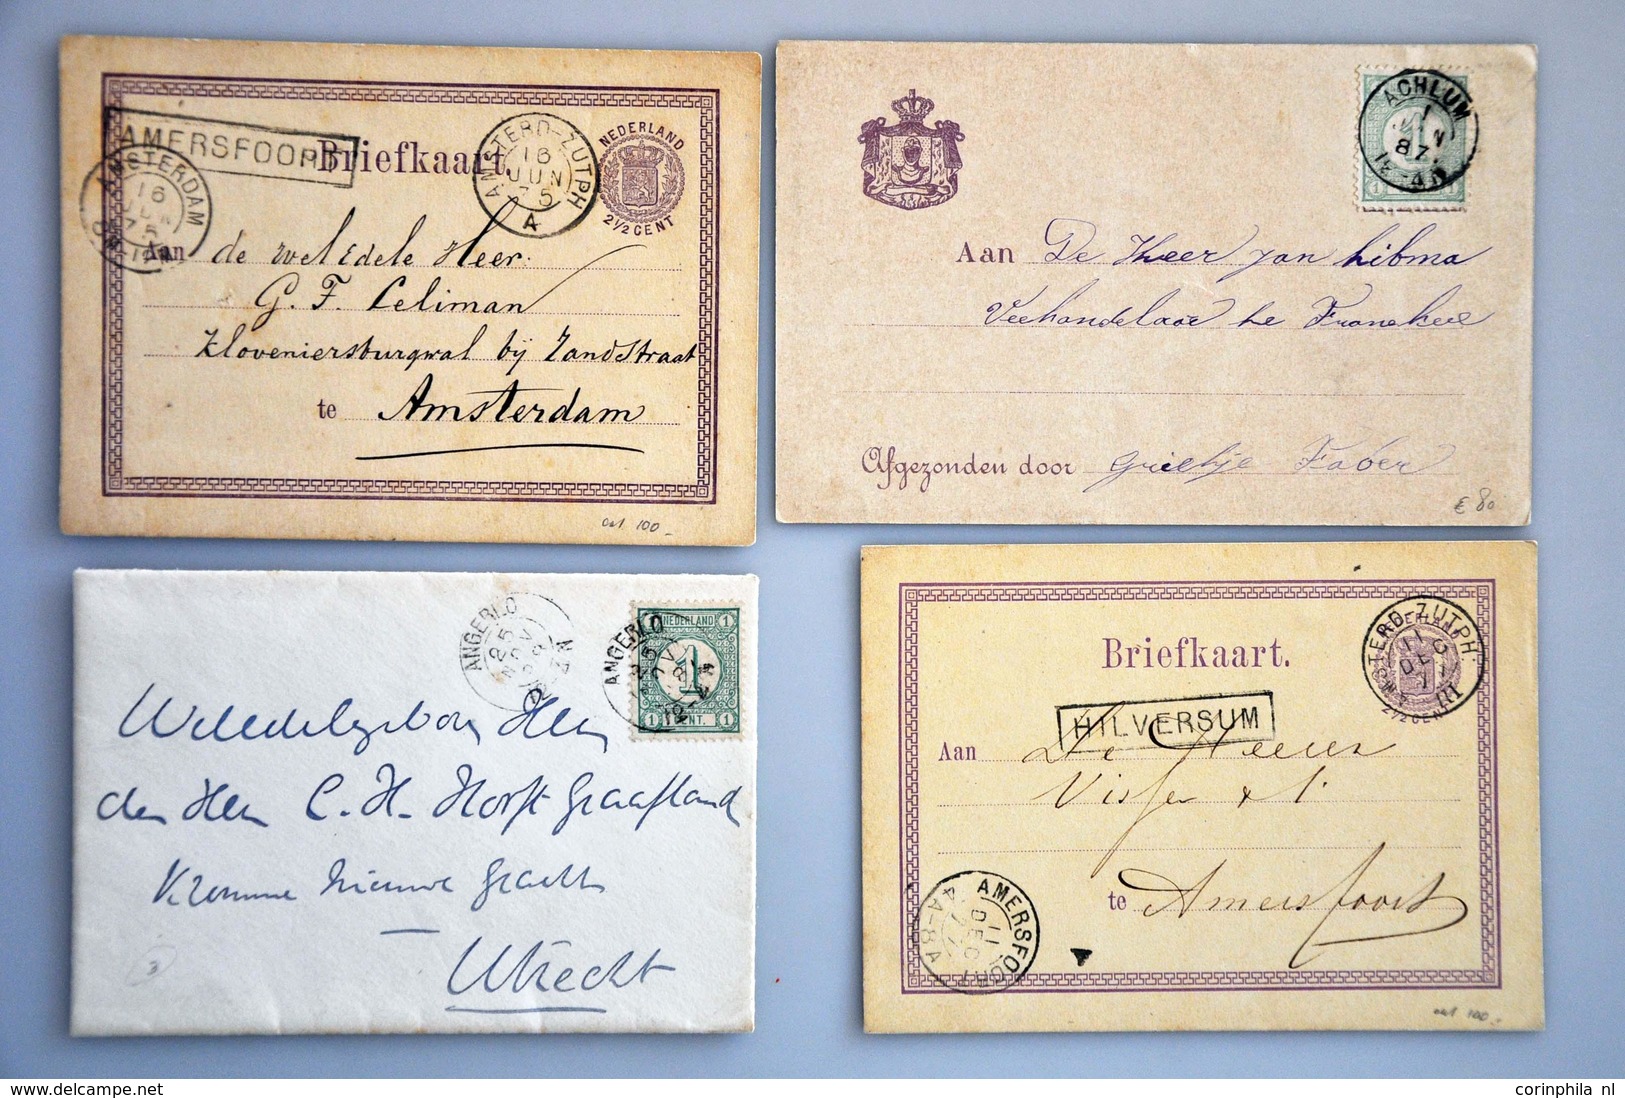 AMERSFOORT
Briefkaart.
AMSTERD-ZUTPH
16
JUN
75
A
NEDERLAND
2½ CENT
AMSTERDAM
16
75
Aan de wel Edele Heer
G. F. Celiman
Kloveniersburgwal bij Zandstraat
te Amsterdam
100
ACHLUM
1
87
1
Aan De Heer Jan Hibma
Veehandelaar te Franeker
Afgezonden door Grietje Faber
€ 80
ANGERLO
25
NOV
ANGERLO
25
NEDERLAND
1
1 CENT. 1
Weledelgeboren Heer
den Heer C. H. Horst Graafland
Kromme Nieuwe Gracht
Utrecht
3
Briefkaart.
AMSTERD-ZUTPH.
11
DEC
77
III
2½ CENT
HILVERSUM
Aan De Heeren
Visser &
te Amersfoort
AMERSFOORT
11
DEC
77
4A-8A
100
corinphila nl